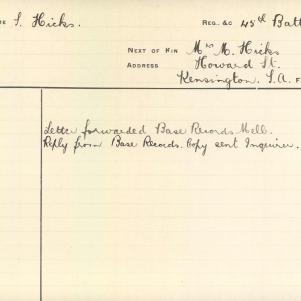 S. Hicks. Reg. &c 45th Batt
Next of Kin Mrs M. Hicks
Address Howard St.
Kensington. S.A.
Letter forwarded Base Records. Melb.
Reply from Base Records. Copy sent Inquirer.